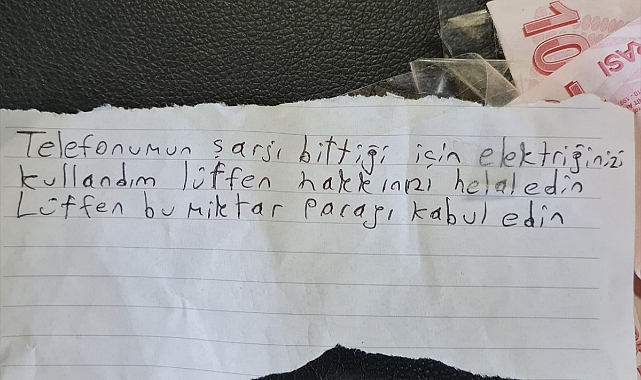 Telefonumun şarjı bittiği için elektriğinizi
kullandım lütfen hakkınızı helal edin
Lütfen bu miktar parayı kabul edin
10
ASI